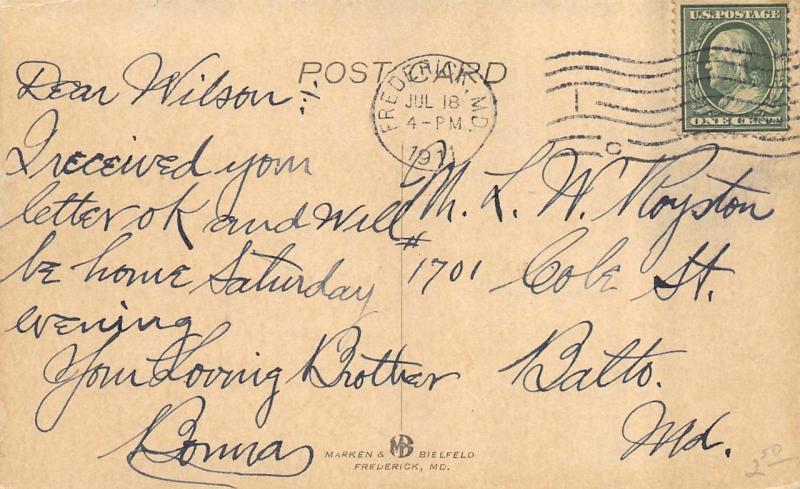 POST CARD
U.S. POSTAGE
ONE CENT
FREDERICK, MD.
JUL 18
4-PM
1911
Dear Wilson:
I received your
letter OK and will
be home Saturday
evening
Your Loving Brother
M. L. W. Royston
#1701 Cole St.
Balto.
Md.
MARKEN & MB BIELFELD
FREDERICK, MD.
2.50